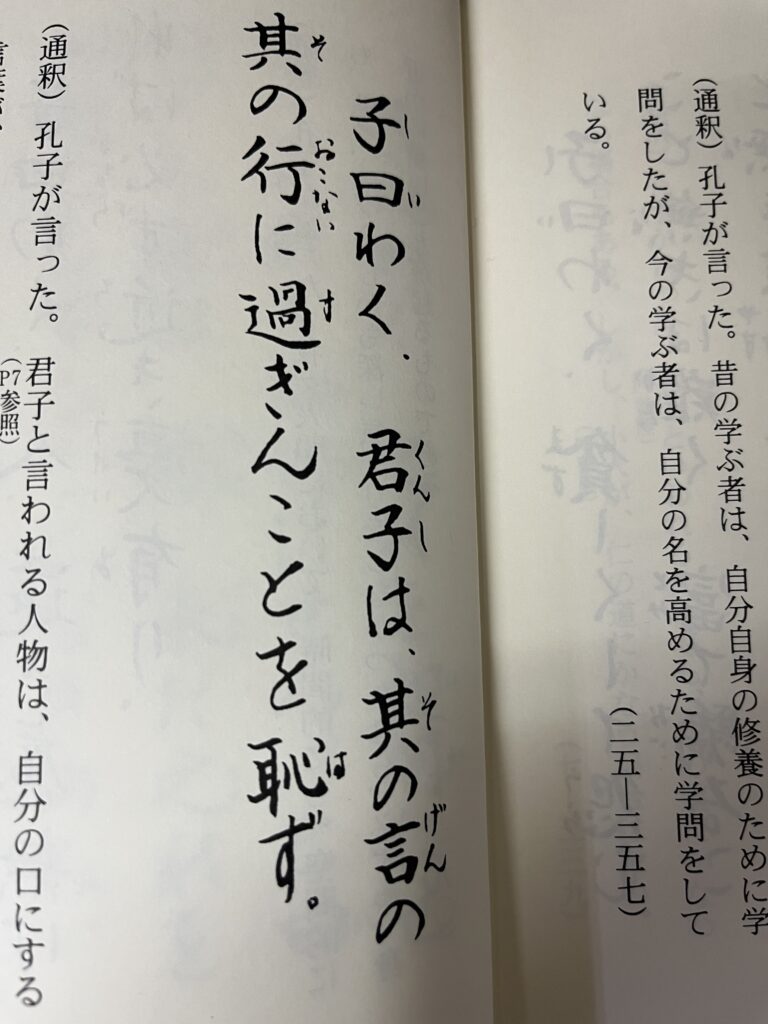 (通釈) 孔子が言った。昔の学ぶ者は、自分自身の修養のために学
問をしたが、今の学ぶ者は、自分の名を高めるために学問をして
いる。
(二五―三五七)
子曰わく、君子は、其の言の
し い くんし そ げん
其の行に過ぎんことを恥ず。
そ おこない す は
(通釈) 孔子が言った。君子と言われる人物は、自分の口にする
(P7参照)